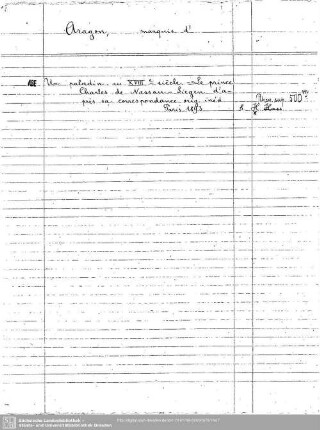 Aragon, marquis d'
Un paladin au XVIIIe siècle. Le prince
Charles de Nassau-Siegen d'a-
près sa correspondance orig. inéd.
Paris 1893
500
Sächsische Landesbibliothek
Staats- und Universitätsbibliothek Dresden